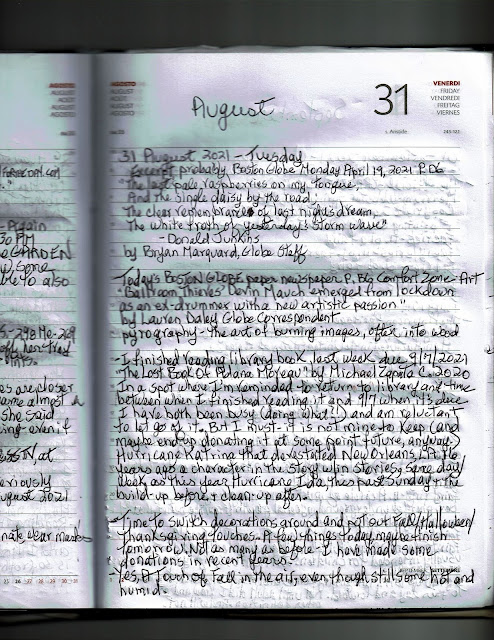 AGOSTO
AUGUST
AOUT
AUGUST
AGOSTO
- Again
30 PM
GARDEN
some
able to also
es are closer
came almost a
she said
ing-even if
at
eriously
August 2021
25 26 27 28 29 30 31
AGOSTO
AUGUST
AOUT
AUGUST
AGOSTO
August
31
VENERDI
FRIDAY
VENDREDI
FREITAG
VIERNES
s. Aristide
243-123
31 August 2021 - Tuesday
Excerpt probably Boston Globe Monday April 19, 2021 P. D6
"The last pale raspberries on my tongue,
And the single daisy by the road;
The clear remembrance of last night's dream,
The white froth of yesterday's storm wave"
- Donald Junkins
by Bryan Marquard, Globe Staff
Today's BOSTON GLOBE paper newspaper P. B6 Comfort Zone - Art
"'Ballroom Thieves' Devin Mauch emerged from lockdown
as an ex-drummer with a new artistic passion"
by Lauren Daley Globe Correspondent
pyrography - the art of burning images, often into wood
- I finished reading library book last week due 9/7/2021
"The Lost Book Of Adana Moreau" by Michael Zapata C. 2020
In a spot where I'm reminded to return to library and time
between when I finished reading it and 9/7 when it's due
I have both been busy (doing what?!) and am reluctant
to let go of it. But I must - it is not mine to keep (and
may be end up donating it at some point future, anyway.)
Hurricane Katrina that devastated New Orleans, LA. 16
years ago a character in the story w/in stories, same day/
week as this year Hurricane Ida this past Sunday & the
build-up before & clean-up after.
- Time to switch decorations around and put out Fall/Halloween/
Thanksgiving touches. A few things today maybe finish
tomorrow. Not as many as before - I have made some
donations in recent years.
- Yes, A Touch of Fall in the air, even though still some hot and
humid.